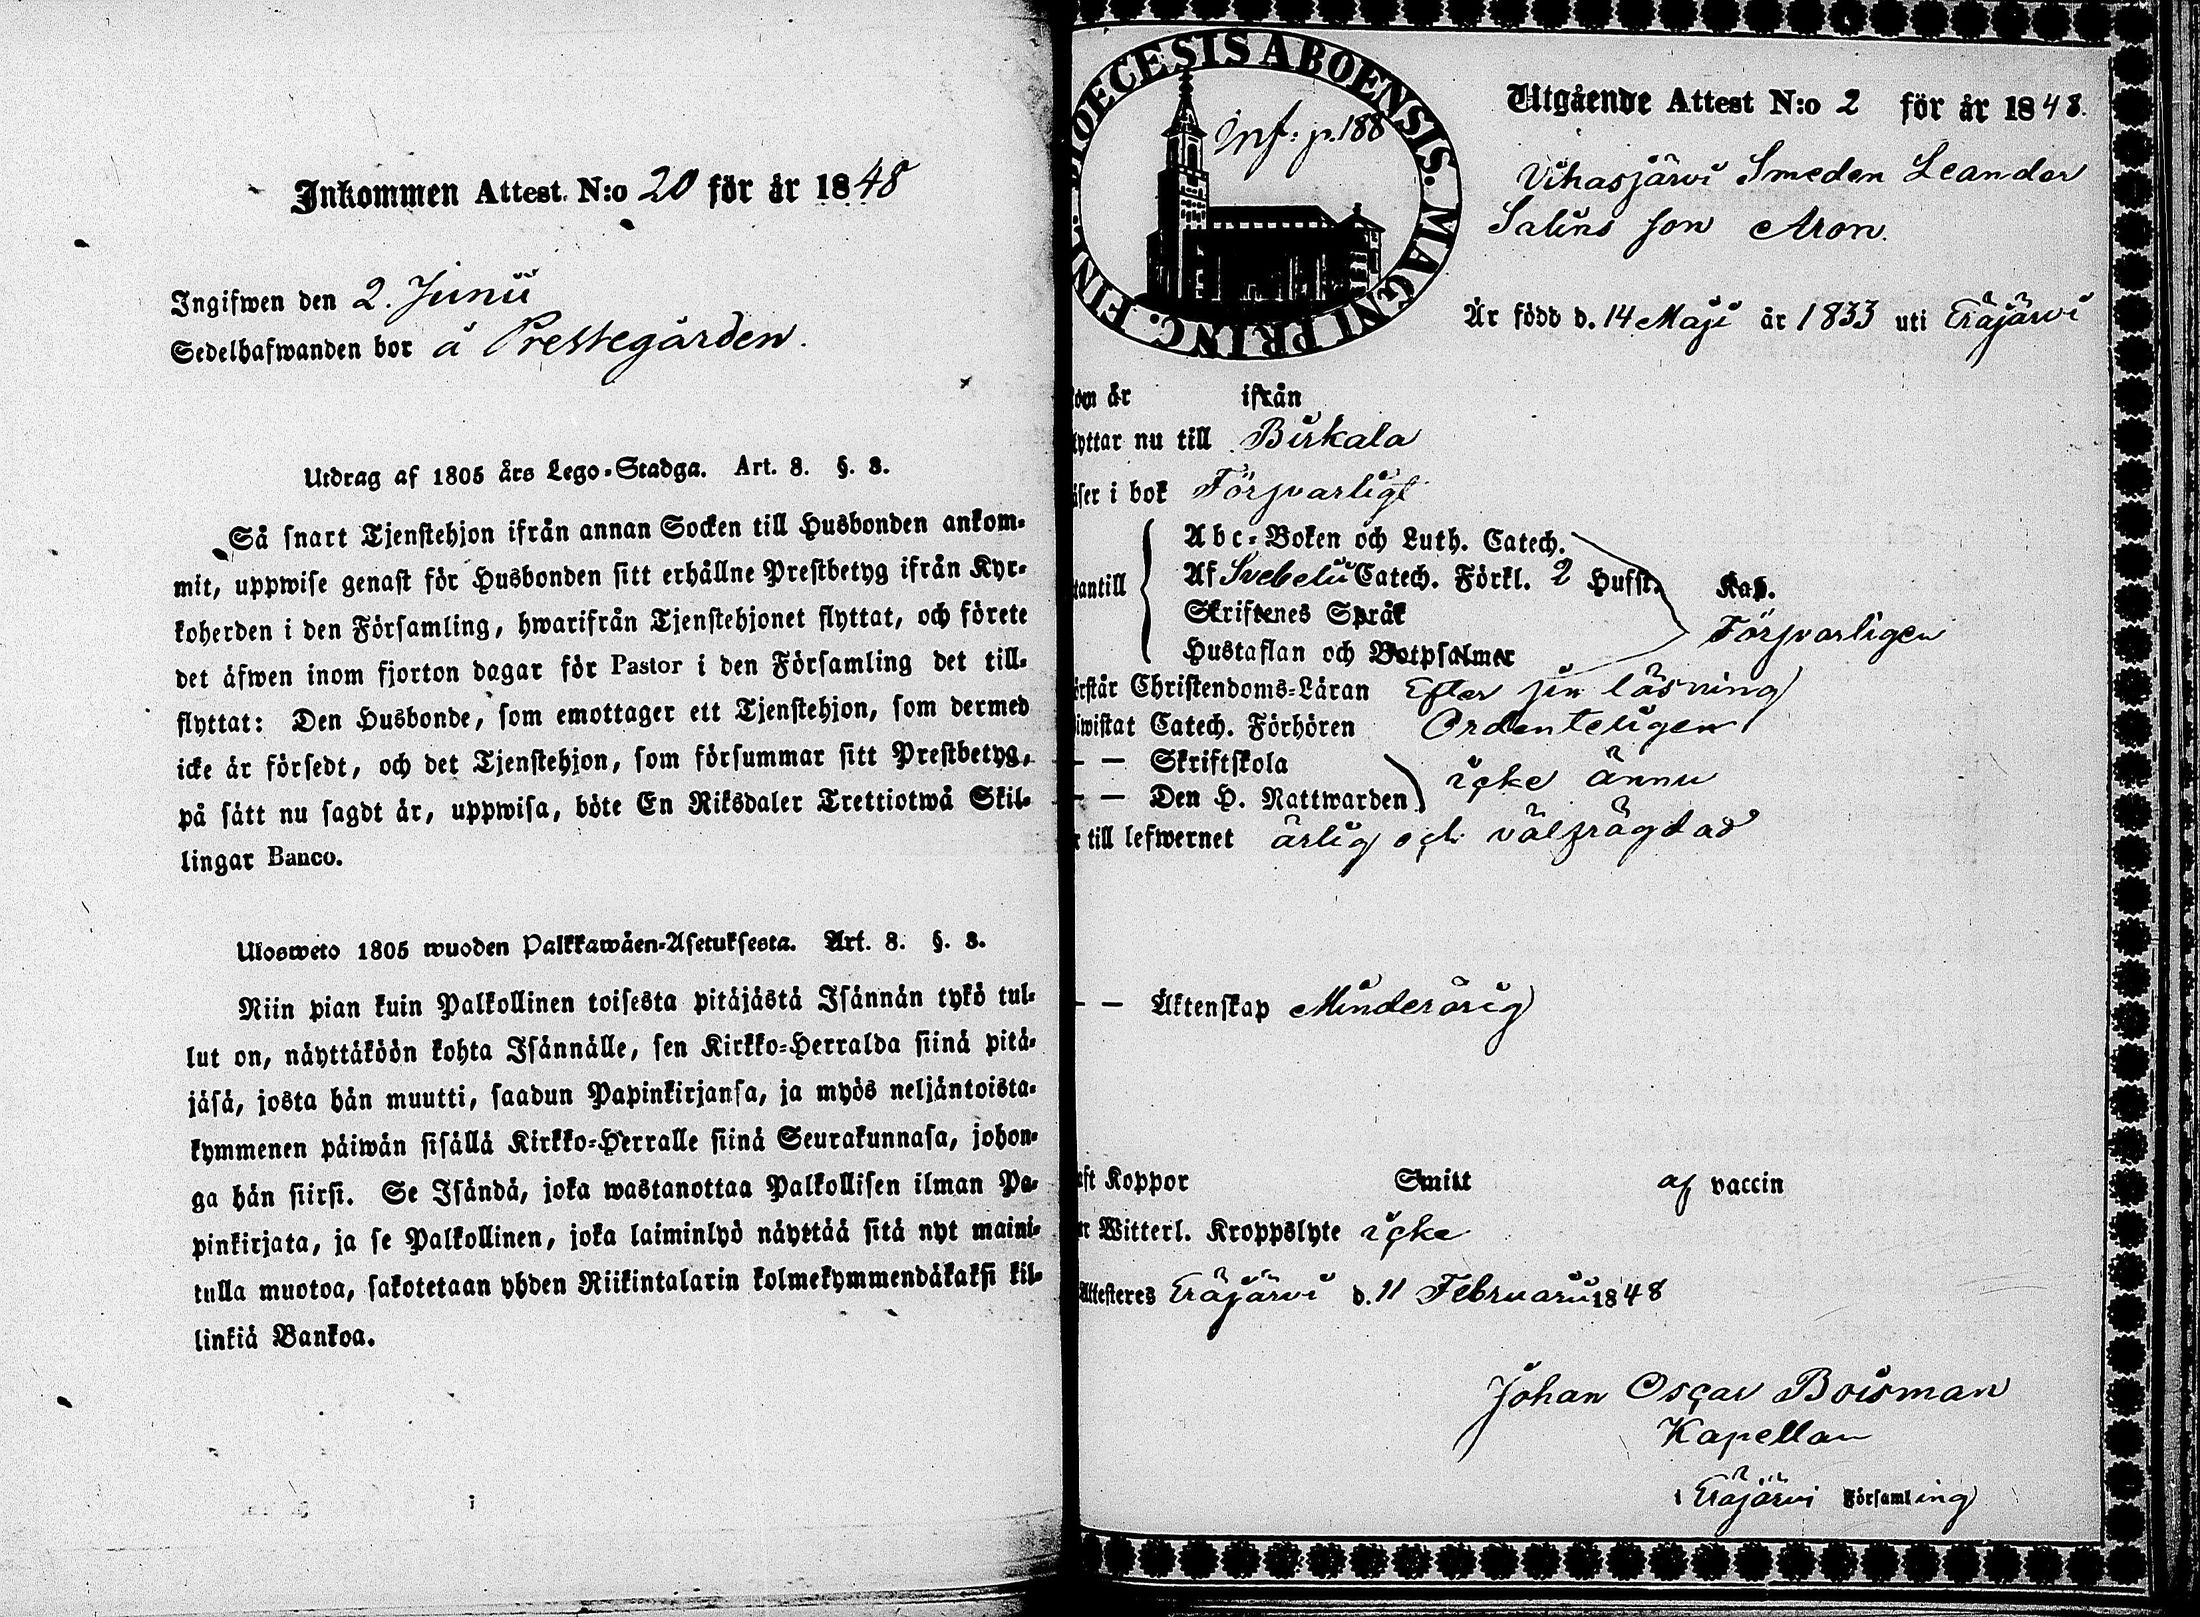 Inkommen Attest. N:o 20 för år 1848
Ingifwen den 2. Junii
Sedelhafwanden bor å Prestegården.
Utdrag af 1805 års Lego-Stadga. Art. 8. §. 3.
Så snart Tjenstehjon ifrån annan Socken till Husbonden ankom-
mit, uppwise genast för Husbonden sitt erhållne Prestbetyg ifrån Kyr-
koherden i den Församling, hwarifrån Tjenstehjonet flyttat, och förete
det äfwen inom fjorton dagar för Pastor i den Församling det till-
flyttat: Den Husbonde, som emottager ett Tjenstehjon, som dermed
icke är försedt, och det Tjenstehjon, som försummar sitt Prestbetyg,
på sätt nu sagdt är, uppwisa, böte En Riksdaler Trettiotwå Skil-
lingar Banco.
Ulosweto 1805 wuoden Palkkawäen-Asetuksesta. Art. 8. §. 3.
Niin pian kuin Palkollinen toisesta pitäjästä Isännän tykö tul-
lut on, näyttäköön kohta Isännälle, sen Kirkko-Herralda siinä pitä-
jäsä, josta hän muutti, saadun Papinkirjansa, ja myös neljäntoista-
kymmenen päiwän sisällä Kirkko-Herralle siinä Seurakunnasa, johon-
ga hän siirsi. Se Isändä, joka wastanottaa Palkollisen ilman Pa-
pinkirjata, ja se Palkollinen, joka laiminlyö näyttää sitä nyt maini-
tulla muotoa, sakotetaan yhden Riikintalarin kolmekymmendäkaksi kil-
linkiä Bankoa.
DIOECESIS ABOENSIS. MAGNI PRINC. FINL.
Inf: p. 188
Utgående Attest N:o 2 för år 1848.
Vihasjärvi Smeden Leander
Salins son Aron.
Är född d. 14 Maji år 1833 uti Eräjärvi
kom år ifrån
flyttar nu till Birkala
läser i bok Försvarligt
utantill
Abc-Boken och Luth. Catech.
Af Svebelii Catech. Förkl. 2 Hufst. Kap.
Skriftenes Språk
Försvarligen
Hustaflan och Botpsalmer
förstår Christendoms-Läran Efter sin läsning
biwistat Catech. Förhören Ordenteligen
— — Skriftskola
icke ännu
— — Den H. Nattwarden
är till lefwernet ärlig och välfrägdad
— — Äktenskap Minderårig
haft Koppor Smitt af vaccin
Witterl. Kroppslyte icke
Attesteres Eräjärvi d. 11 Februarii 1848
Johan Oscar Boisman
Kapellan
i Eräjärvi Församling